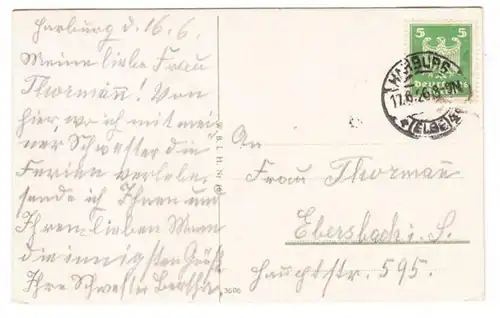 Harburg d. 16.6.
Meine liebe Frau
Thormann! Von
hier wo ich mit mei-
ner Schwester die
Ferien verlebe,
sende ich Ihnen und
Ihrem lieben Mann
die innigsten Grüße
Ihre Schwester Bertha
5 5
HARBURG
17.6.26.8-9N
(ELBE)
An
Frau Thormann
Ebersbach i. S.
Hauptstr. 595.
3606